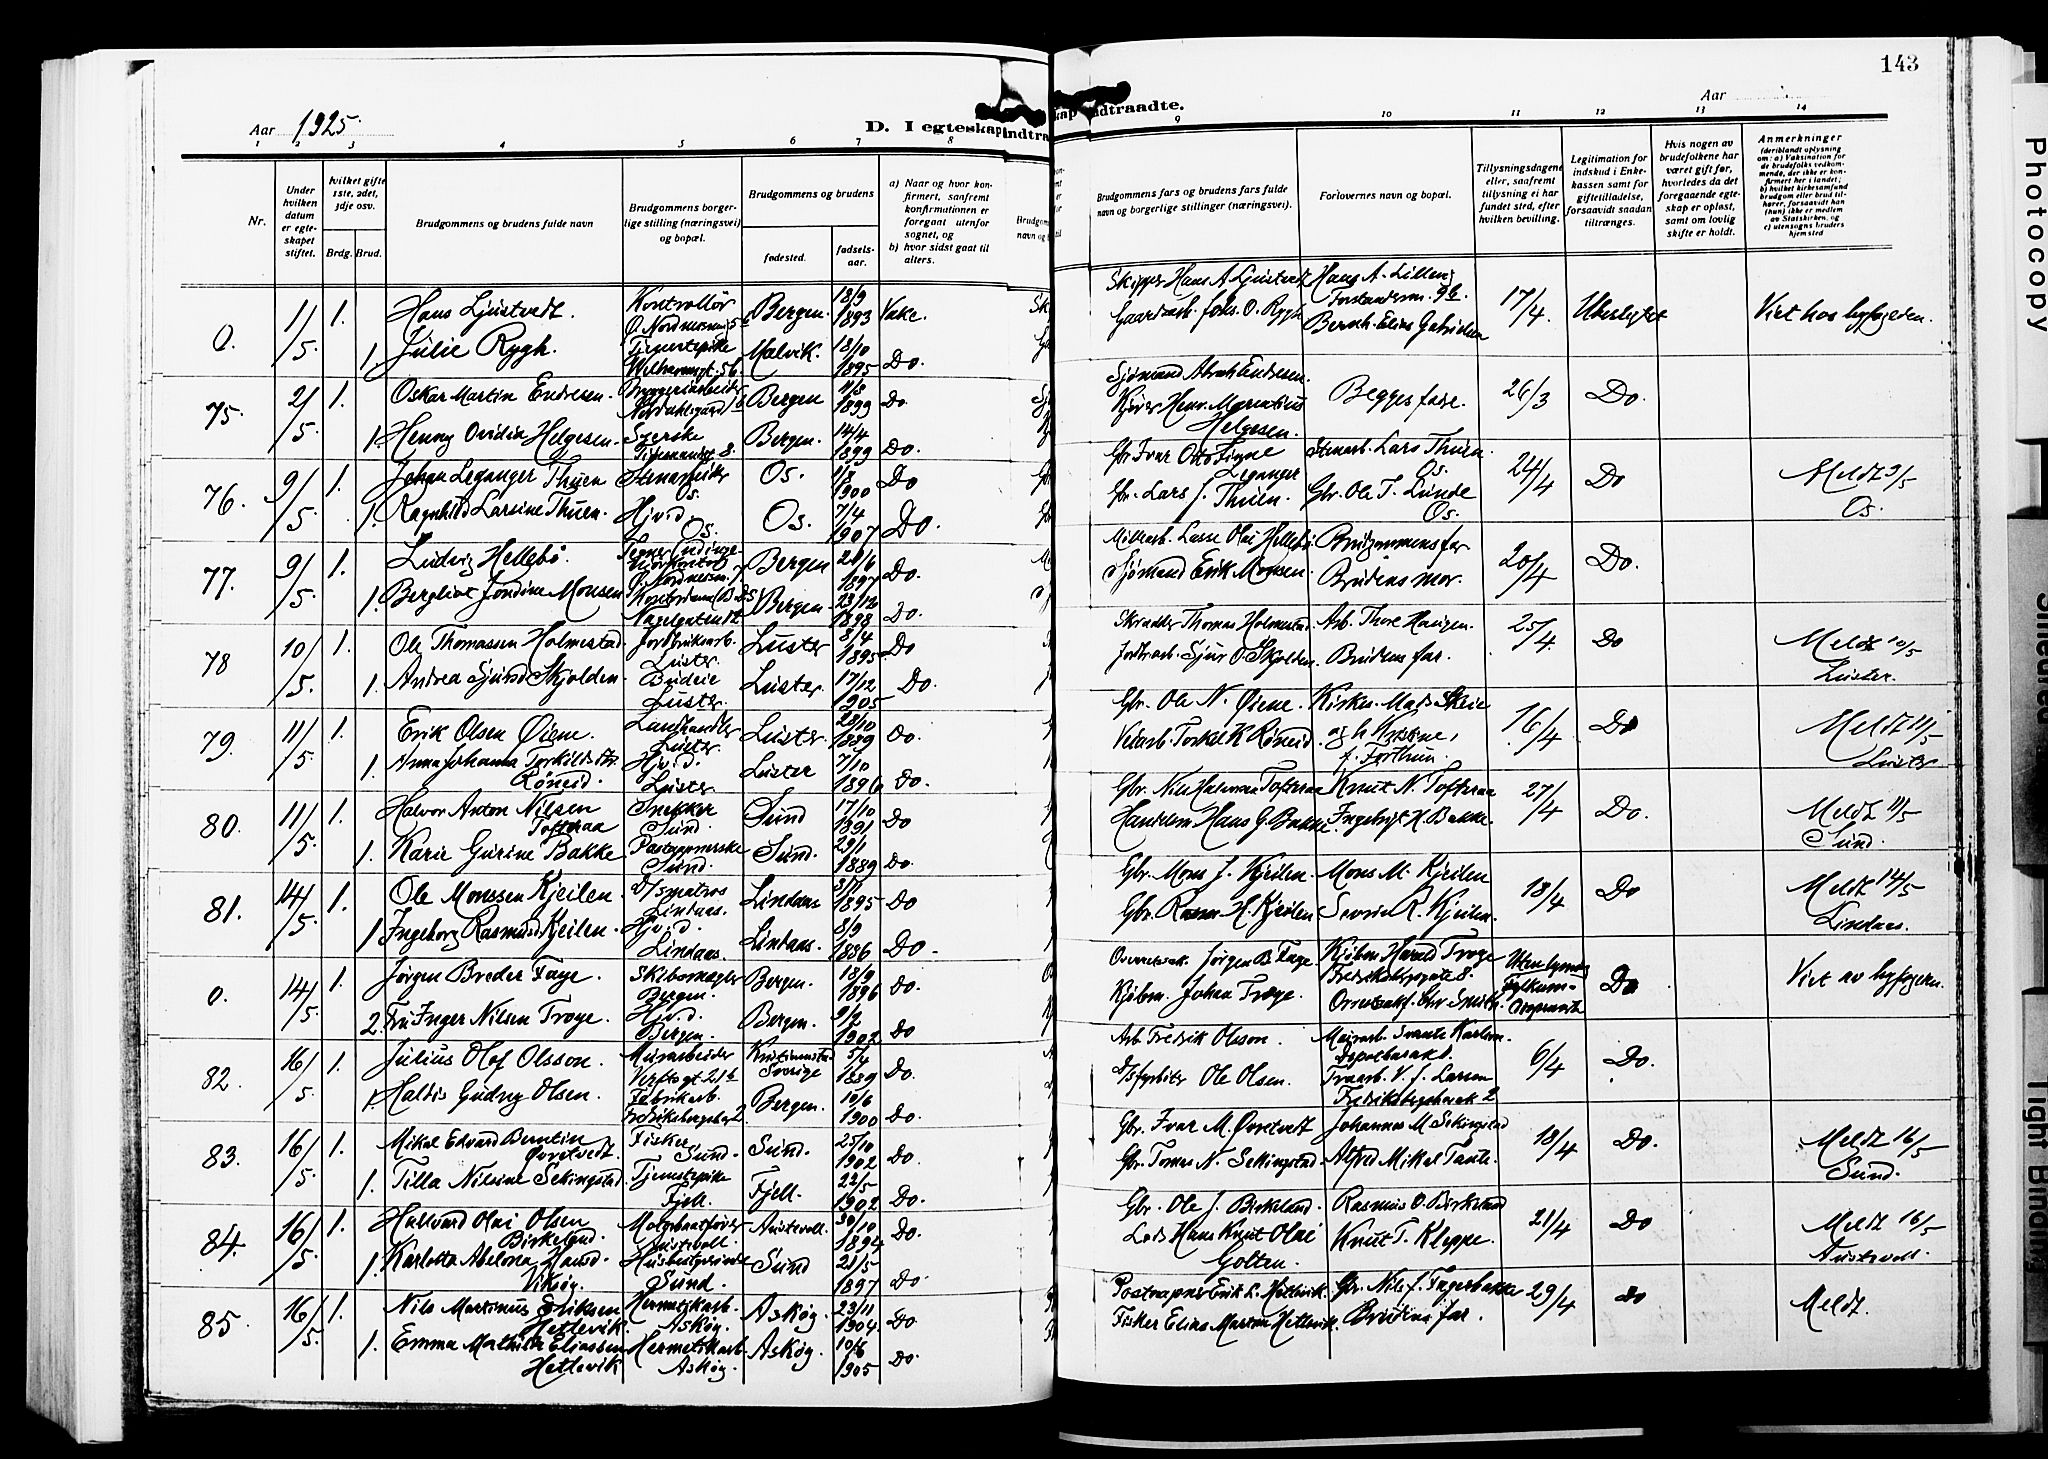 143
Aar 1925.
Aar
D. I egteskap indtra
kap indtraadte.
1 2 3 4 5 6 7 8
9 10 11 12 13 14
Nr.
Under hvilken datum er egteskapet stiftet.
hvilket gifte 1ste, 2det, 3dje osv.
Brdg. Brud.
Brudgommens og brudens fulde navn
Brudgommens borgerlige stilling (næringsvei) og bopæl.
Brudgommens og brudens
fødested.
fødselsaar.
a) Naar og hvor konfirmert, saafremt konfirmationen er foregaat utenfor sognet, og
b) hvor sidst gaat til alters.
Brudgommens fars og brudens fars fulde navn og borgerlige stillinger (næringsvei).
Forlovernes navn og bopæl.
Tillysningsdagene eller, saafremt tillysning ei har fundet sted, efter hvilken bevilling.
Legitimation for indskud i Enkekassen samt for giftetilladelse, forsaavidt saadan tiltrænges.
Hvis nogen av brudefolkene har været gift før, hvorledes da det foregaaende egteskap er opløst, samt om lovlig skifte er holdt.
Anmerkninger
(deriblandt oplysning om: a) Vaksination for de brudefolks vedkommende, der ikke er konfirmert her i landet; b) hvilket kirkesamfund brudgom eller brud tilhører, forsaavidt han (hun) ikke er medlem av Statskirken, og c) utensogns bruders hjemsted
0. 1/5. 1. Hans Ljustvedt. Kontrollør Bergen. 18/9 1893
Skipper Hans A Ljustvedt Hans A. Lilleng 17/4. Viet hos byfogden.
1. Julie Rygh. Tjenestepike Malvik. 18/10 1895 Do.
75. 2/5. 1. Oskar Martin Endresen. Bryggeriarbeider Bergen 1899 Do
Kjører Henr. Marentius Helgesen. Begges fare. 26/3 Do.
1. Henny Ovidia Helgesen. Syerske Bergen. 14/4 1899 Do.
76. 9/5. 1. Johan Leganger Thuen Stenarbeider Os. Os. 1900 Do
Stenarb. Lars Thuen. Os. 24/4 Do Meldt 9/5 Os.
1. Ragnhild Larsine Thuen. Hjv.d. Os. Os. 7/4 1907 Do.
Gbr. Lars J. Thuen. Gbr. Ole T. Lunde Os.
77. 9/5. 1. Ludvig Hellebø. Bergen 1897 Do.
Brudgommens far 20/4 Do.
1. Bergliot Jondine Monsen Nagelgaten 12 Bergen. 23/12 1898 Do.
Sjømand Erik Monsen. Brudens mor.
78 10/5. 1. Ole Thomassen Holmestad. Jordbruksarb. Luster. Luster 8/4 1895. Do
Skrædder Thomas Holmestad. Arb. Thore Haugen. 25/4. Do Meldt 10/5 Luster.
1. Andrea Sjursd Skjolden. Budeie Luster. Luster. 17/12 1905 Do.
Jordbrarb. Sjur O. Skjolden. Brudens far.
79. 11/5. 1. Erik Olsen Øiene. Landhandler Luster. Luster. 28/10 1889 Do.
Gbr. Ole N. Øiene. Kirkes. Mads Skeie 16/4 Do Meldt 11/5 Luster
1. Anna Johanna Torkildsdtr. Røneid. Hjv.d. Luster Luster 7/10 1896 Do.
80. 11/5. 1. Halvor Anton Nilsen Tofteraa Snekker Sund. Sund 17/10 1891 Do
Knut N. Tofteraa 27/4 Do. Meldt 11/5 Sund.
1. Karie Gurine Bakke Postaapnerske Sund. Sund. 29/1 1889 Do.
Handelsm Hans G. Bakke. Ingebrigt H. Bakke.
81. 14/5. 1. Ole Monssen Kjeilen. D/smatros Lindaas. Lindaas 1895 Do
Gbr. Mons J. Kjeilen. Mons M. Kjeilen 18/4 Do Meldt 14/5 Lindaas.
1 Ingeborg Rasmusd Kjeilen. Hjv.d. Lindaas. Lindaas. 8/9 1886 Do.
Gbr. Rasm. H. Kjeilen Severin R. Kjeilen.
0. 14/5. 1. Jørgen Breder Faye. Skibsmægler Bergen. Bergen. 18/9 1896 Do.
Jørgen B. Faye Do Viet av byfogden.
2. Fru Inger Nilsen Troye. Hjv.d. Bergen. Bergen. 9/2 1902 Do
Kjøbm. Johan Troye.
82. 16/5. 1. Julius Olof Olsson. Murarbeider Verftsgt 21b Kristianstad Sverige 5/4 1889 Do.
Arb. Fredrik Olsson. 6/4 Do.
1. Haldis Gudny Olsen. Fabrikarb. Bergen. 10/6 1900 Do.
D/sfyrbøter Ole Olsen. Traarb. V. J. Larsen
83. 16/5. 1. Mikal Edvard Berntin Øvretvedt. Fisker Sund. Sund. 25/10 1902 Do.
Gbr. Ivar M. Øvretvedt Johannes M Sekingstad 18/4 Do. Meldt 16/5 Sund.
1. Tilla Nilsine Sekingstad. Tjenestepike Fjell. Fjell. 22/5 1902 Do.
Gbr. Tomas N. Sekingstad. Alfred Mikal Tante.
84. 16/5. 1. Hallvard Olai Olsen Birkeland. Motorbaatfører Austevoll. Austevoll. 30/10 1894 Do.
Gbr. Ole J. Birkeland. Rasmus O. Birkeland 21/4 Do Meldt 16/5 Austevoll.
1. Karlotta Abelona Hansd. Viksøy. Husbestyrerinde Sund. Sund 28/5 1897 Do.
Lods Hans Knut Olai Golten. Knut T. Kleppe.
85. 16/5. 1. Nils Martinus Eriksen Hetlevik. Hermetikarb. Askøy. Askøy. 23/11 1904. Do
Postaapner Erik L. Hetlevik. Gbr. Nils J. Ingersbakke 29/4 Do Meldt.
1. Emma Mathilde Eliassen Hetlevik Hermetikarb. Askøy. Askøy. 10/6 1905 Do
Fisker Elias Martin Hetlevik. Brudens far.
Photocopy
Tight Binding